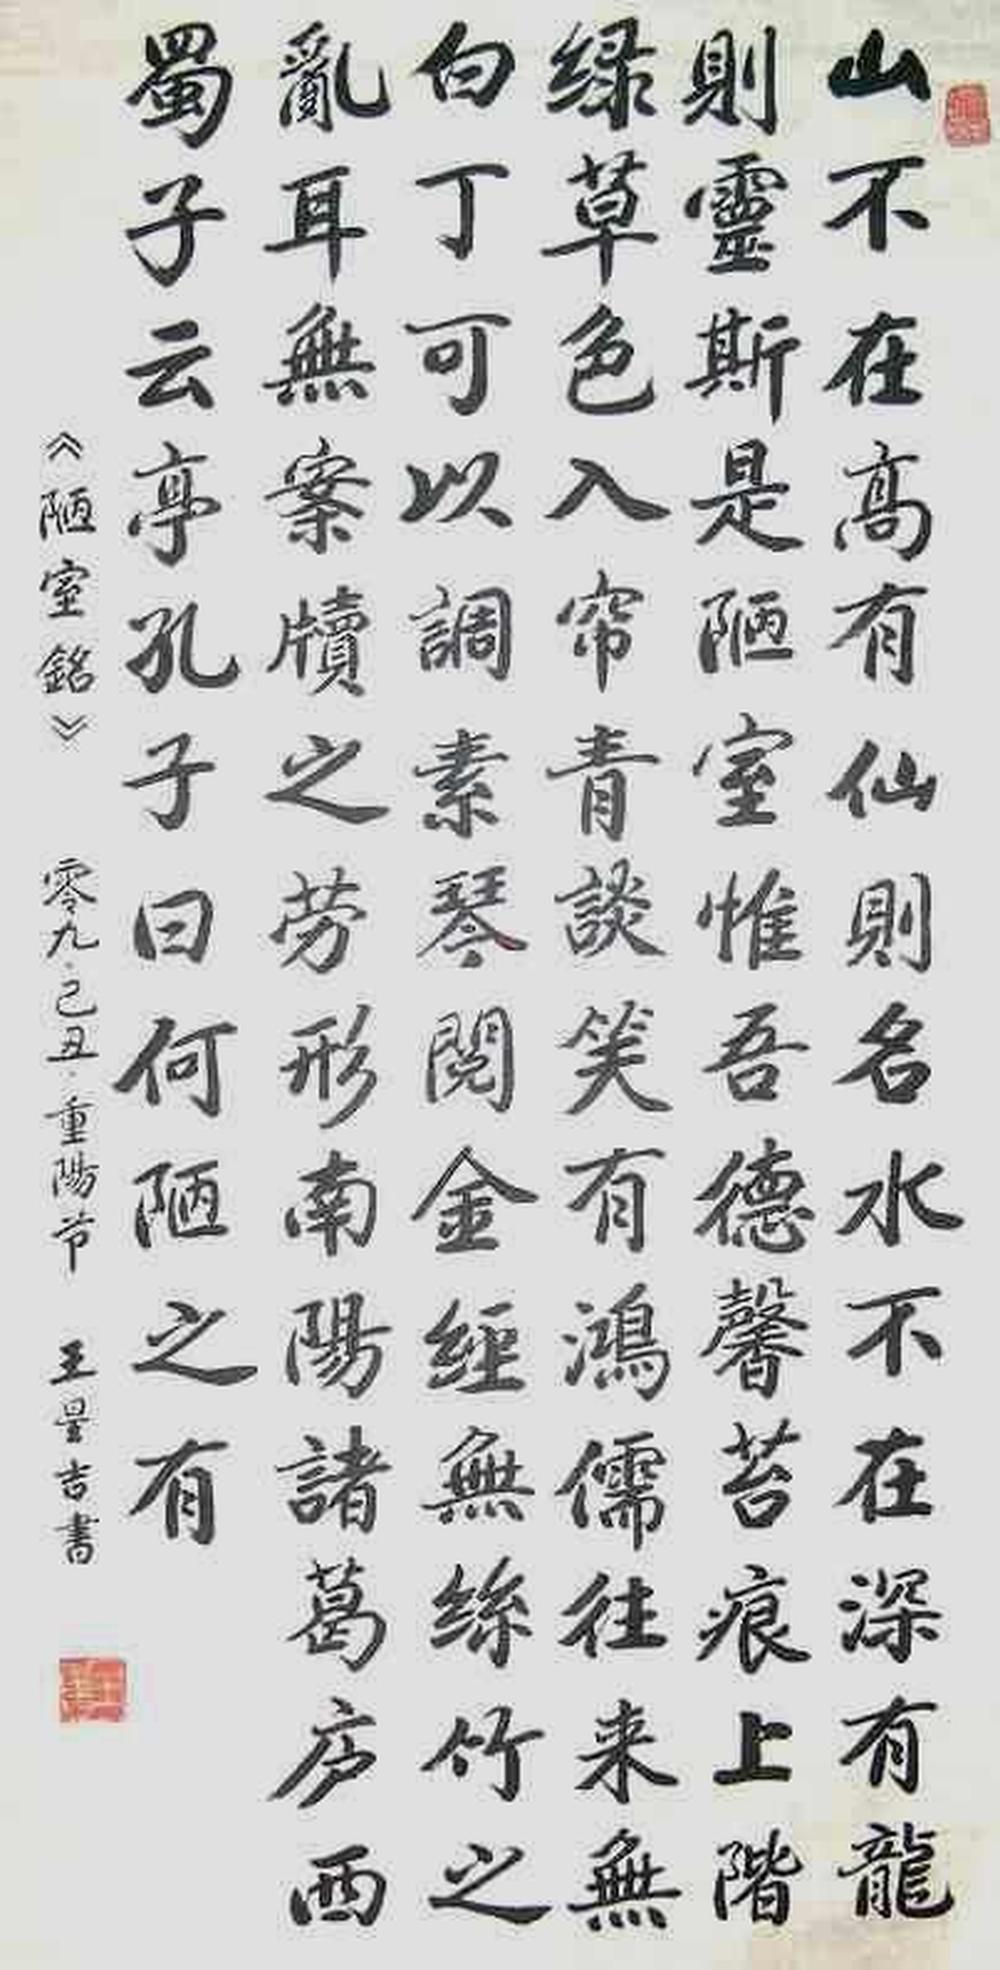 山不在高有仙則名水不在深有龍
則靈斯是陋室惟吾德馨苔痕上階
绿草色入帘青談笑有鴻儒往来無
白丁可以調素琴閱金經無絲竹之
亂耳無案牘之劳形南陽諸葛庐西
蜀子云亭孔子曰何陋之有
《陋室銘》 零九·己丑·重陽节 王星吉書